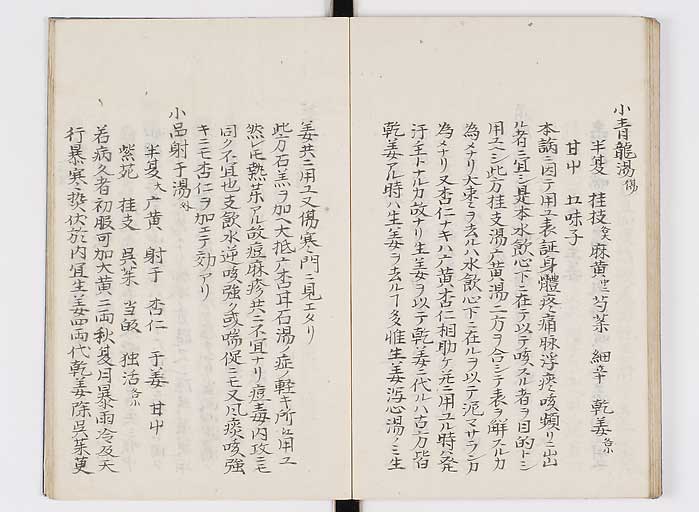 小青龍湯 傷
半夏 桂枝各大 麻黄 芍薬 細辛 乾姜各小
甘中 五味子
本論ニ因テ用ユ表証身體疼痛脉浮痰咳頻リニ出
ル者ニ宜シ是本水飲心下ニ在テ以テ咳スル者ヲ目的トシ
用ユヘシ此方桂支湯广黄湯二方ヲ合シテ表ヲ解スルカ
為メナリ大棗ヲ去ルハ水飲心下ニ在ルヲ以テ泥マサランカ
為メナリ又杏仁ナキハ广黄杏仁相助ケ並ニ用ユル時ハ発
汗主トナルカ故ナリ生姜ヲ以テ乾姜ニ代ルハ古方皆
乾姜アル時ハ生姜ヲ去ルヿ多惟生姜瀉心湯ノミ生
姜共ニ用ユ又傷寒門ニ見エタリ
此方石羔ヲ加ヘ大抵广杏甘石湯ノ症ノ軽キ所ニ用ユ
然レモ熱茱アル故痘麻疹共ニ不宜ナリ痘毒内攻ニモ
同ク不宜也支飲水逆咳強ク或喘促ニモ又風痰咳強
キニモ杏仁ヲ加エテ効アリ
小品射干湯
半夏大 广黄 射干 杏仁 干姜 甘中
紫苑 桂支 呉茱 当皈 独活各小
若病久者初服可加大黄二両秋夏月暴雨冷及天
行暴寒熱伏於内宜生姜四両代乾姜除呉茱萸